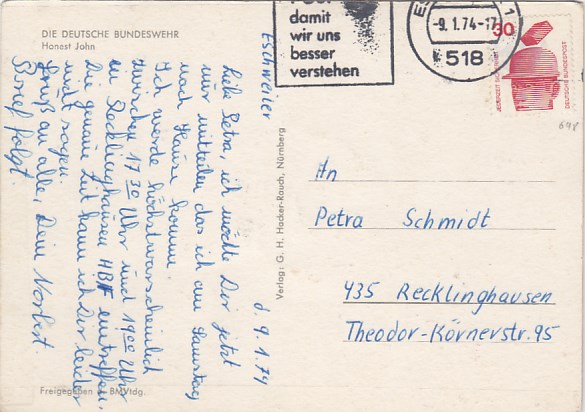 DIE DEUTSCHE BUNDESWEHR
Honest John
Eschweiler d. 9.1.74
Liebe Petra, ich möchte Dir jetzt
nur mitteilen das ich am Samstag
nach Hause komme.
Ich werde höchstwarscheinlich
zwischen 17 30 Uhr und 19 00 Uhr
in Recklinghausen HBF eintreffen.
Die genaue Zeit kann ich Dir leider
nicht sagen.
Gruß an alle, Dein Norbert.
Brief folgt.
Freigegeben BMVtdg.
Verlag: G. H. Hacker-Rauch, Nürnberg
damit
wir uns
besser
verstehen
-9.1.74-17
518
1
30
JEDERZEIT SICHERHEIT
DEUTSCHE BUNDESPOST
An
Petra Schmidt
435 Recklinghausen
Theodor-Körnerstr. 95